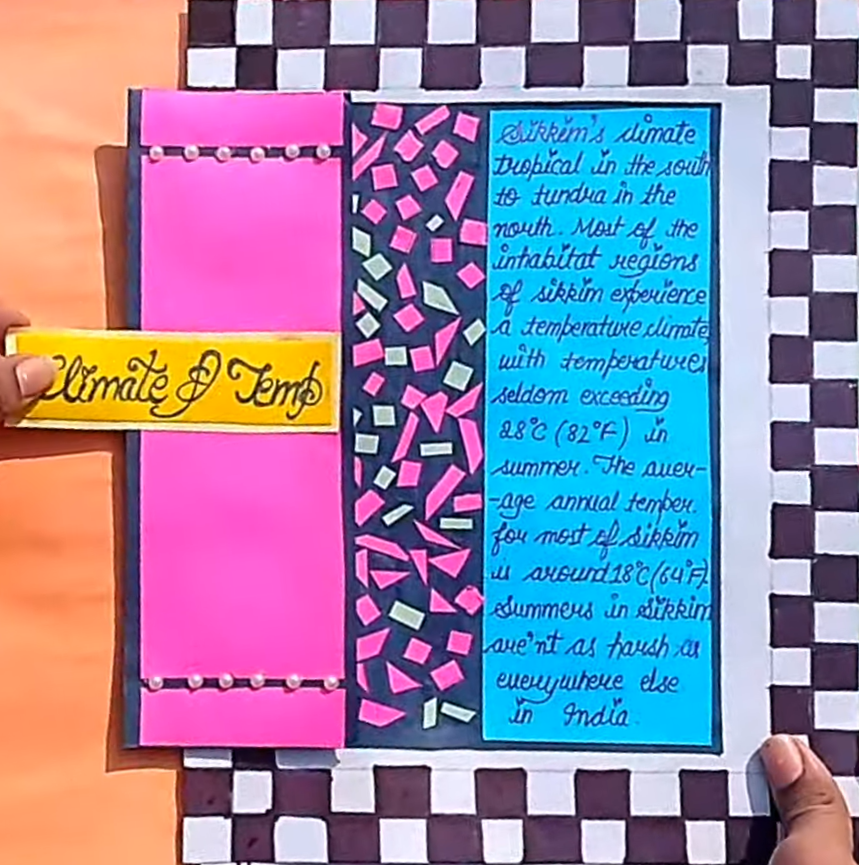 Climate & Temp
Sikkim's climate
tropical in the south
to tundra in the
north. Most of the
inhabitat regions
of sikkim experience
a temperature climate,
with temperatures
seldom exceeding
28°C (82°F) in
summer. The aver-
-age annual temper.
for most of Sikkim
is around 18°C (64°F).
Summers in Sikkim
are'nt as harsh as
everywhere else
in India.